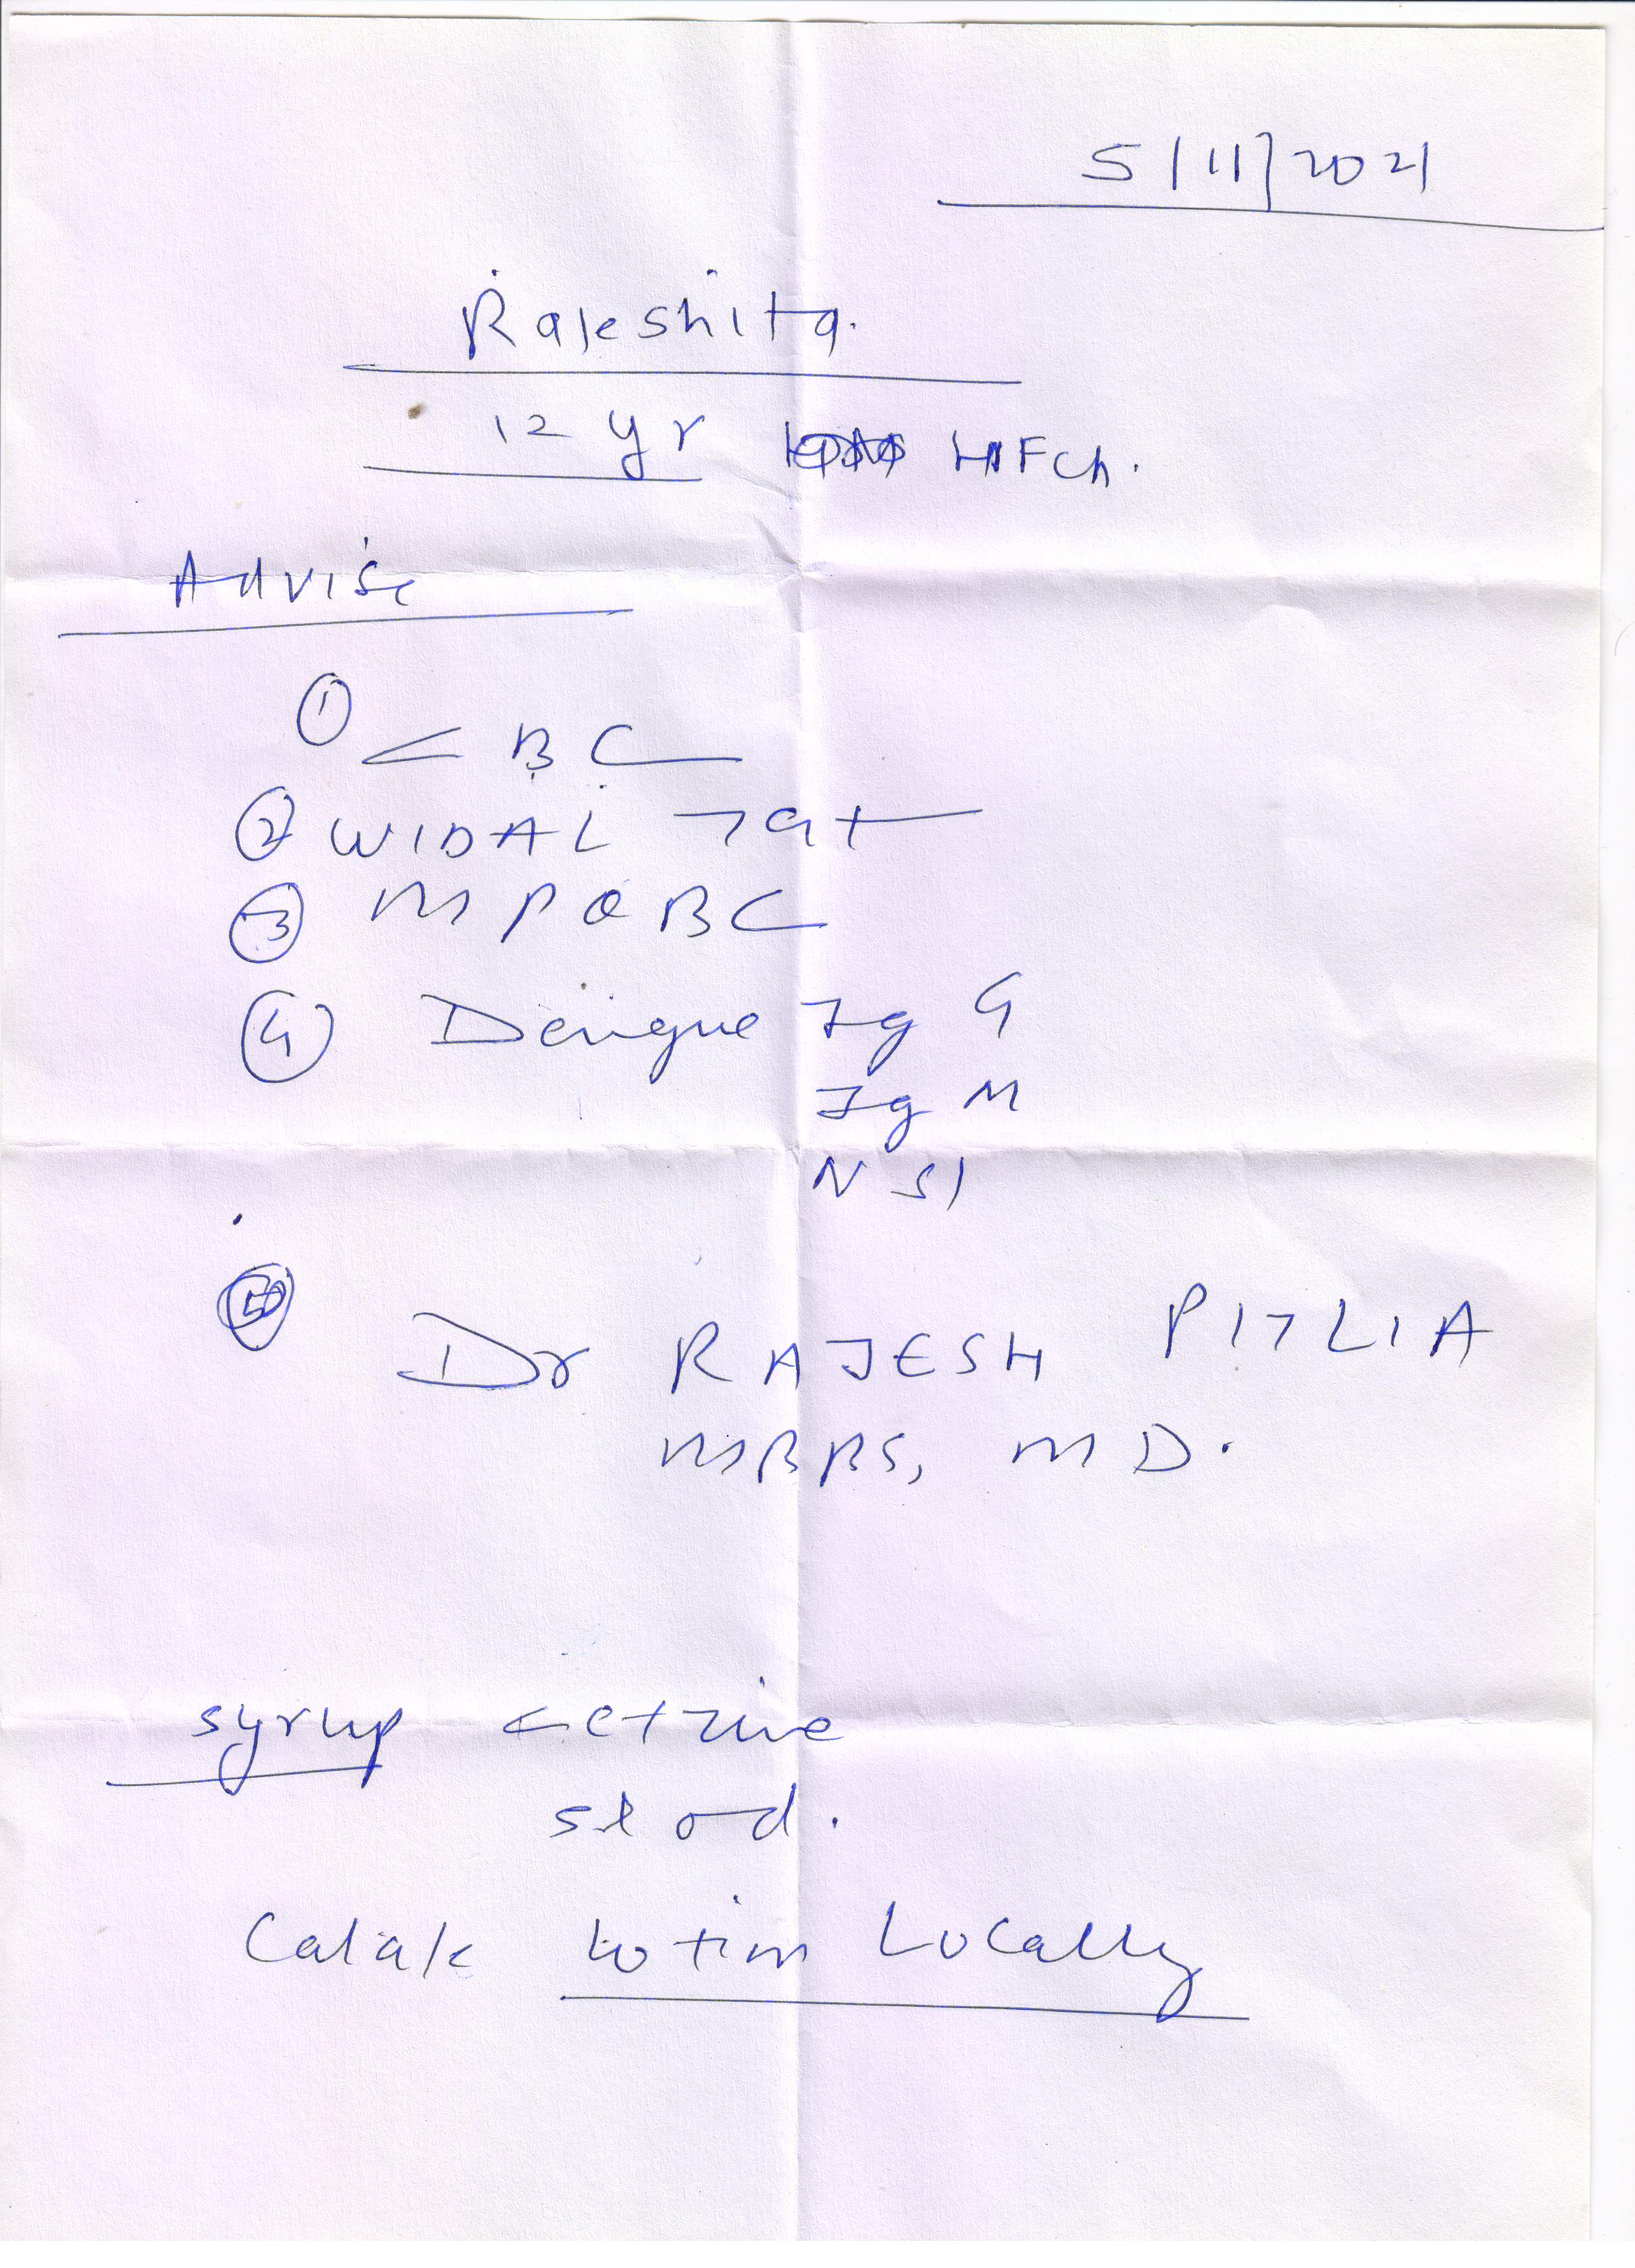 5/11/2021
Rakshita.
12 yr HFCh.
Advise
① CBC
② WIDAL Test
③ MP QBC
④ Dengue IgG
IgM
NS1
⑤
Dr RAJESH PITLIA
MBBS, MD.
syrup cetzine
5ml od.
Calak lotion Locally